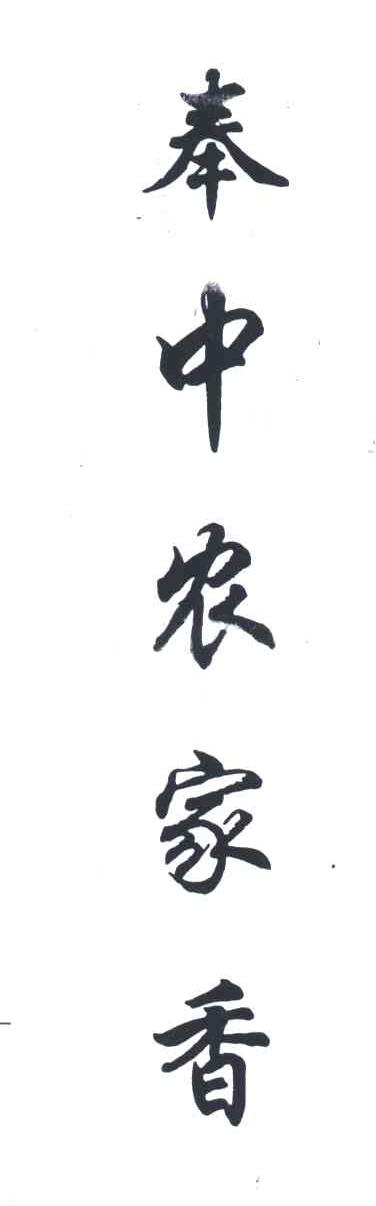 奉中农家香